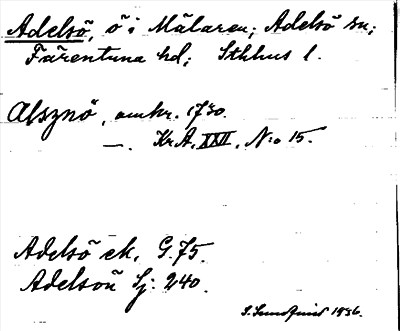 Adelsö, ö i Mälaren; Adelsö sn;
Färentuna hd; Sthlms l.
Alsznö, omkr. 1730.
—. Kr.A. XXII. No 15.
Adelsö ek. G. 75.
Adelsön Sj: 240.
1936.